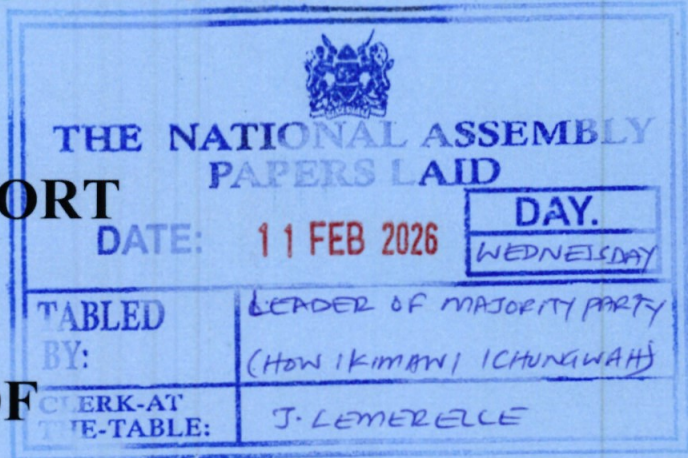 THE NATIONAL ASSEMBLY
PAPERS LAID
ORT
DATE: 11 FEB 2026
DAY.
WEDNESDAY
TABLED BY:
LEADER OF MAJORITY PARTY
(HON KIMANI ICHUNGWAH)
OF
CLERK-AT THE-TABLE:
J. LEMERELLE